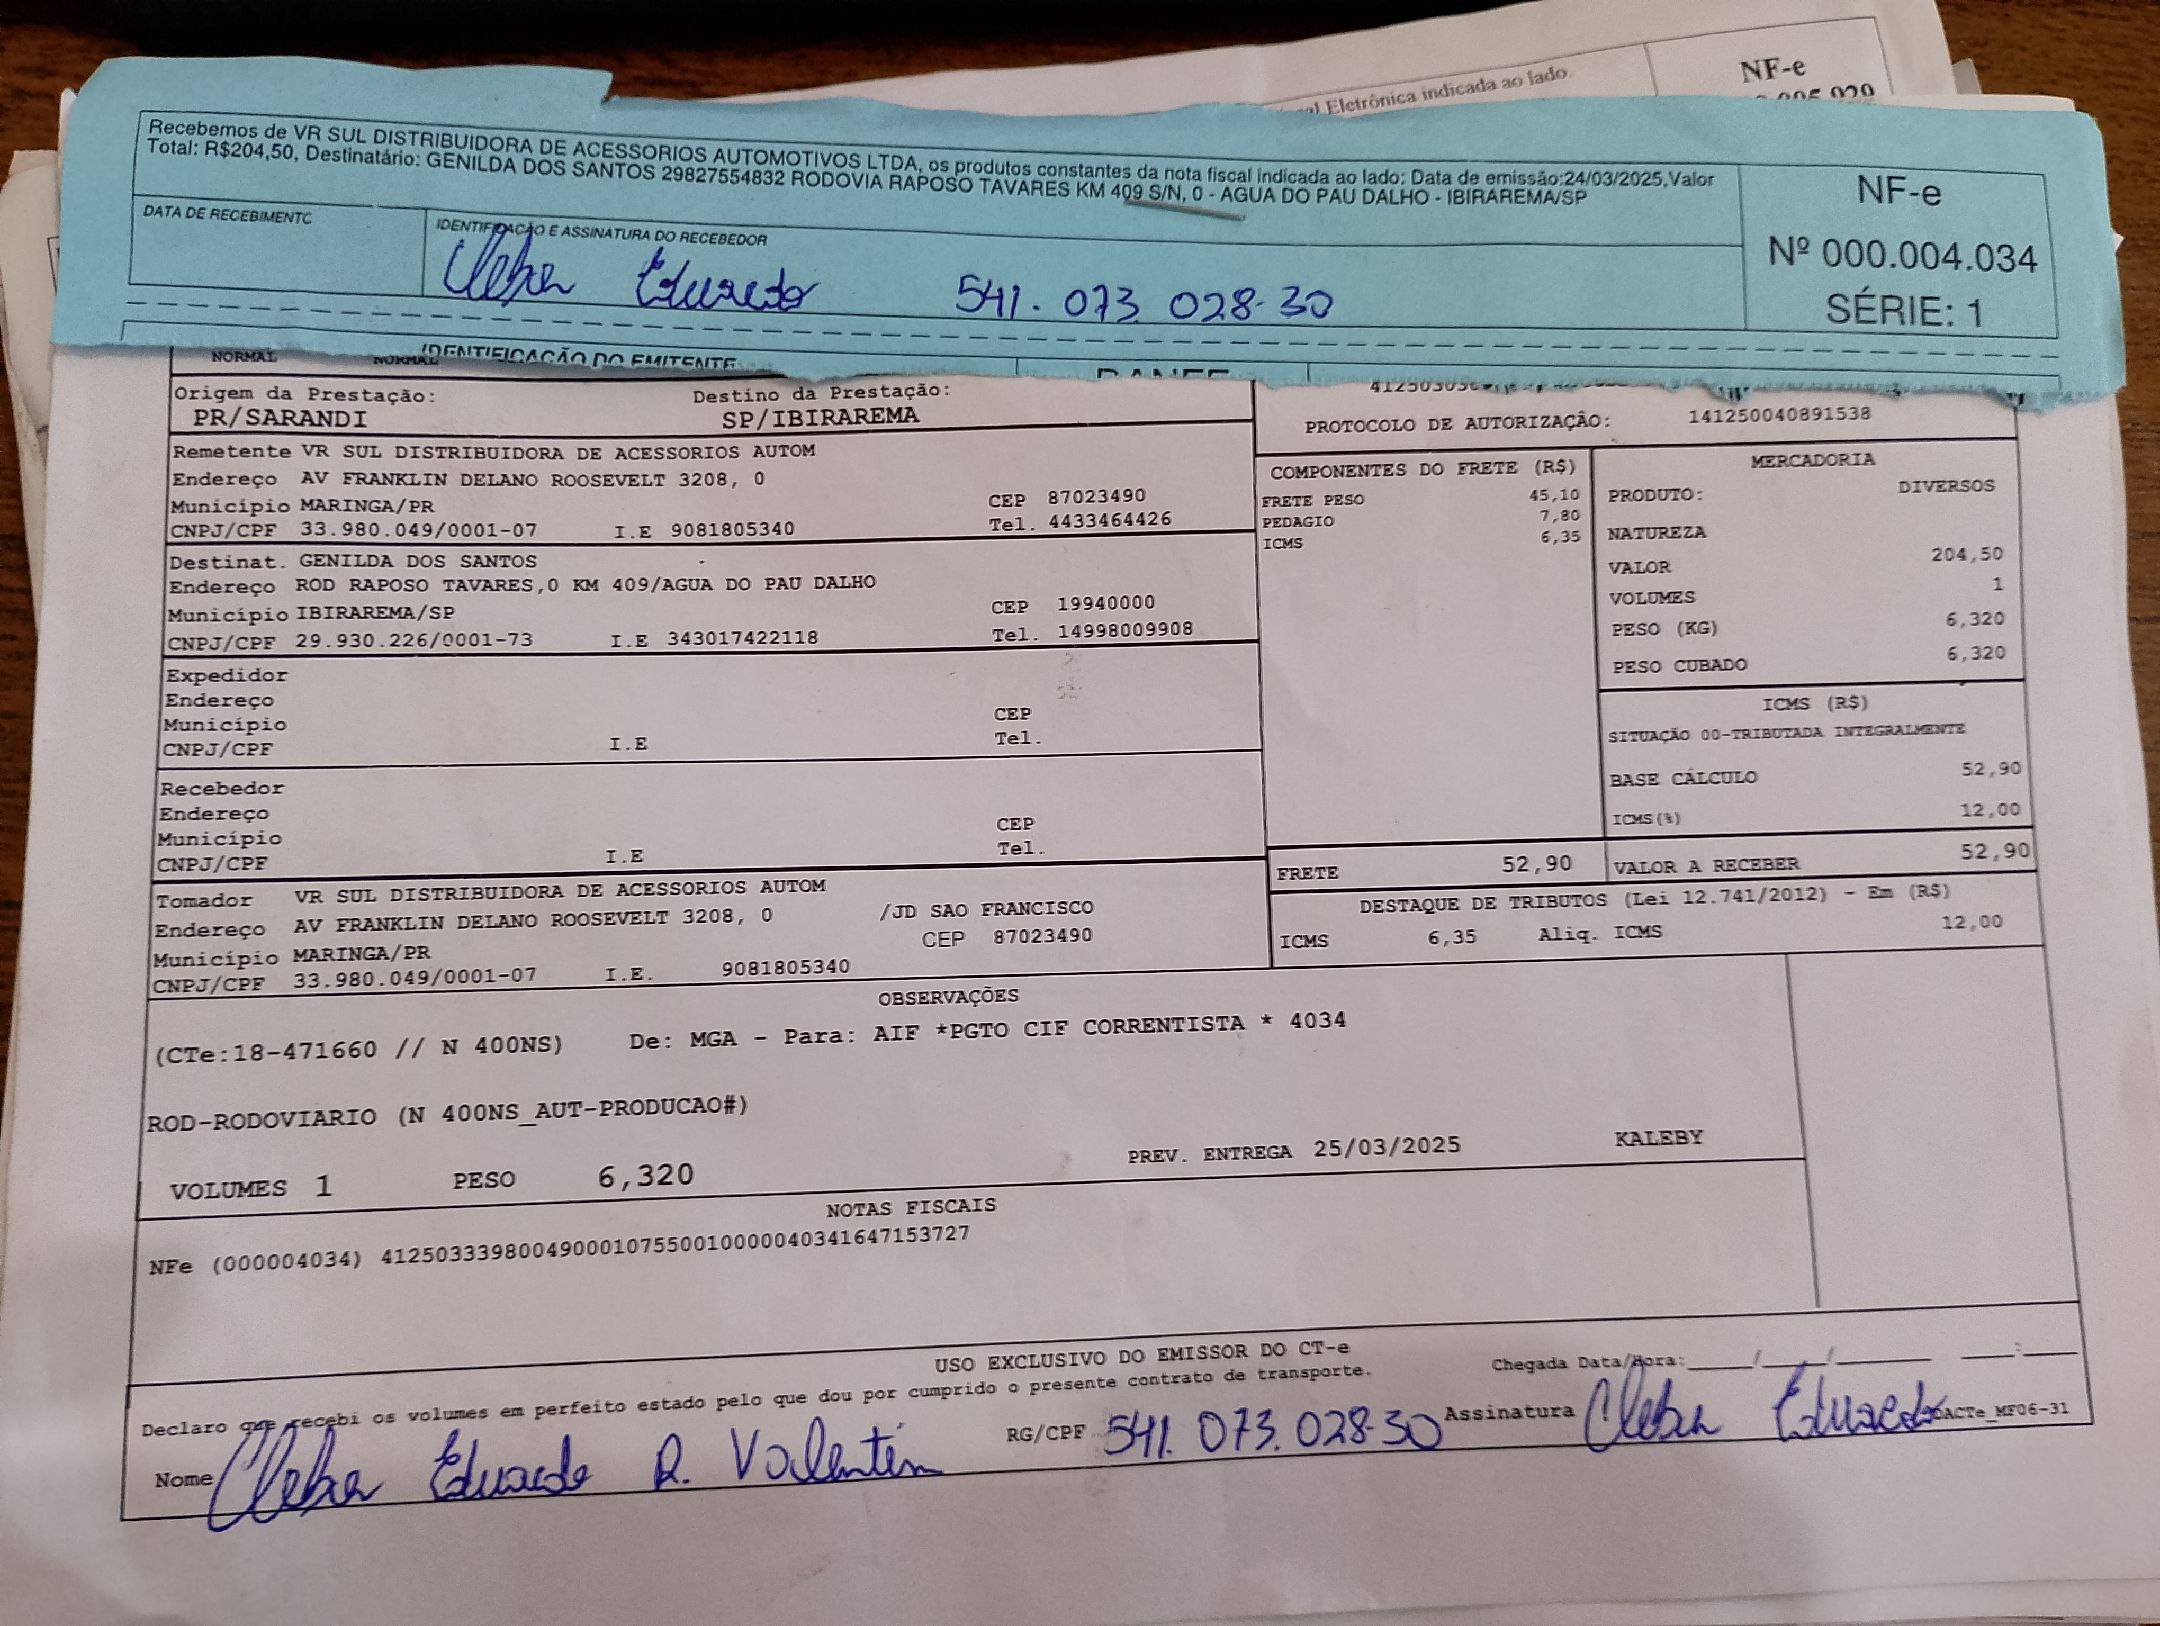 al Eletrônica indicada ao lado.
NF-e
Recebemos de VR SUL DISTRIBUIDORA DE ACESSORIOS AUTOMOTIVOS LTDA, os produtos constantes da nota fiscal indicada ao lado; Data de emissão:24/03/2025,Valor
Total: R$204,50, Destinatário: GENILDA DOS SANTOS 29827554832 RODOVIA RAPOSO TAVARES KM 409 S/N, 0 - AGUA DO PAU DALHO - IBIRAREMA/SP
NF-e
Nº 000.004.034
SÉRIE: 1
DATA DE RECEBIMENTO
IDENTIFICAÇÃO E ASSINATURA DO RECEBEDOR
Cleber Eduardo 541.073.028-30
IDENTIFICAÇÃO DO EMITENTE
DANFE
NORMAL NORMAL
Origem da Prestação: Destino da Prestação:
PR/SARANDI SP/IBIRAREMA
PROTOCOLO DE AUTORIZAÇÃO: 141250040891538
Remetente VR SUL DISTRIBUIDORA DE ACESSORIOS AUTOM
Endereço AV FRANKLIN DELANO ROOSEVELT 3208, 0
Município MARINGA/PR CEP 87023490
CNPJ/CPF 33.980.049/0001-07 I.E 9081805340 Tel. 4433464426
Destinat. GENILDA DOS SANTOS
Endereço ROD RAPOSO TAVARES,0 KM 409/AGUA DO PAU DALHO
Município IBIRAREMA/SP CEP 19940000
CNPJ/CPF 29.930.226/0001-73 I.E 343017422118 Tel. 14998009908
Expedidor
Endereço
Município CEP
CNPJ/CPF I.E Tel.
Recebedor
Endereço
Município CEP
CNPJ/CPF I.E Tel.
Tomador VR SUL DISTRIBUIDORA DE ACESSORIOS AUTOM
Endereço AV FRANKLIN DELANO ROOSEVELT 3208, 0 /JD SAO FRANCISCO
Município MARINGA/PR CEP 87023490
CNPJ/CPF 33.980.049/0001-07 I.E. 9081805340
COMPONENTES DO FRETE (R$)
FRETE PESO 45,10
PEDAGIO 7,80
ICMS 6,35
MERCADORIA
PRODUTO: DIVERSOS
NATUREZA
VALOR 204,50
VOLUMES 1
PESO (KG) 6,320
PESO CUBADO 6,320
ICMS (R$)
SITUAÇÃO 00-TRIBUTADA INTEGRALMENTE
BASE CÁLCULO 52,90
ICMS(%) 12,00
FRETE 52,90 VALOR A RECEBER 52,90
DESTAQUE DE TRIBUTOS (Lei 12.741/2012) - Em (R$)
ICMS 6,35 Aliq. ICMS 12,00
OBSERVAÇÕES
(CTe:18-471660 // N 400NS) De: MGA - Para: AIF *PGTO CIF CORRENTISTA * 4034
ROD-RODOVIARIO (N 400NS_AUT-PRODUCAO#)
VOLUMES 1 PESO 6,320 PREV. ENTREGA 25/03/2025 KALEBY
NOTAS FISCAIS
NFe (000004034) 41250333980049000107550010000040341647153727
USO EXCLUSIVO DO EMISSOR DO CT-e
Declaro que recebi os volumes em perfeito estado pelo que dou por cumprido o presente contrato de transporte. Chegada Data/Hora:_____/_____/_______ ____:____
Nome Cleber Eduardo R. Valentim RG/CPF 541.073.028-30 Assinatura Cleber Eduardo DACTe_MF06-31